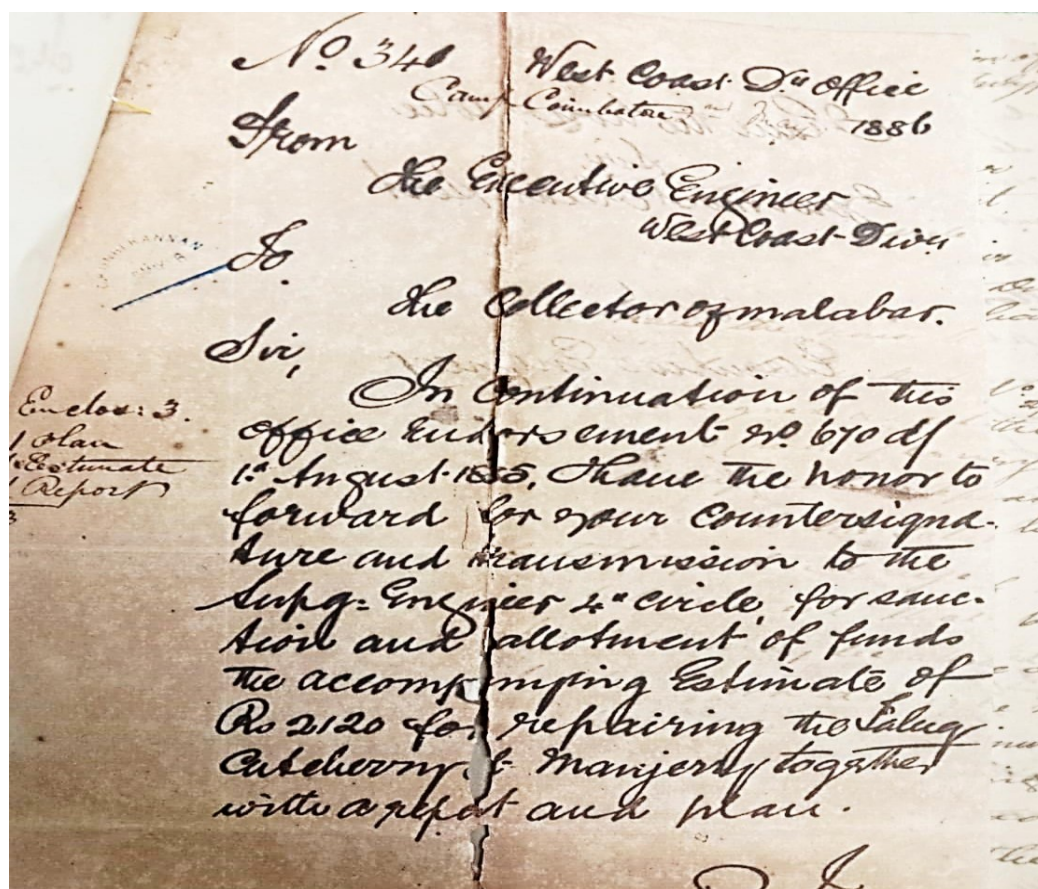 No. 346 West Coast Dn Office
Camp Coimbatore 1886
From
The Executive Engineer
West Coast Divn
To
The Collector of Malabar.
Sir,
In Continuation of this
Office Endorsement No. 670 of
1st August 1885, I have the honor to
forward for your Countersigna-
ture and transmission to the
Supg: Engineer 4th Circle for sanc-
tion and allotment of funds
the accompanying Estimate of
Rs 2120 for repairing the Taluq
Cutcherry at Manjery together
with a report and plan.
Enclos: 3.
1 Plan
1 Estimate
1 Report
3